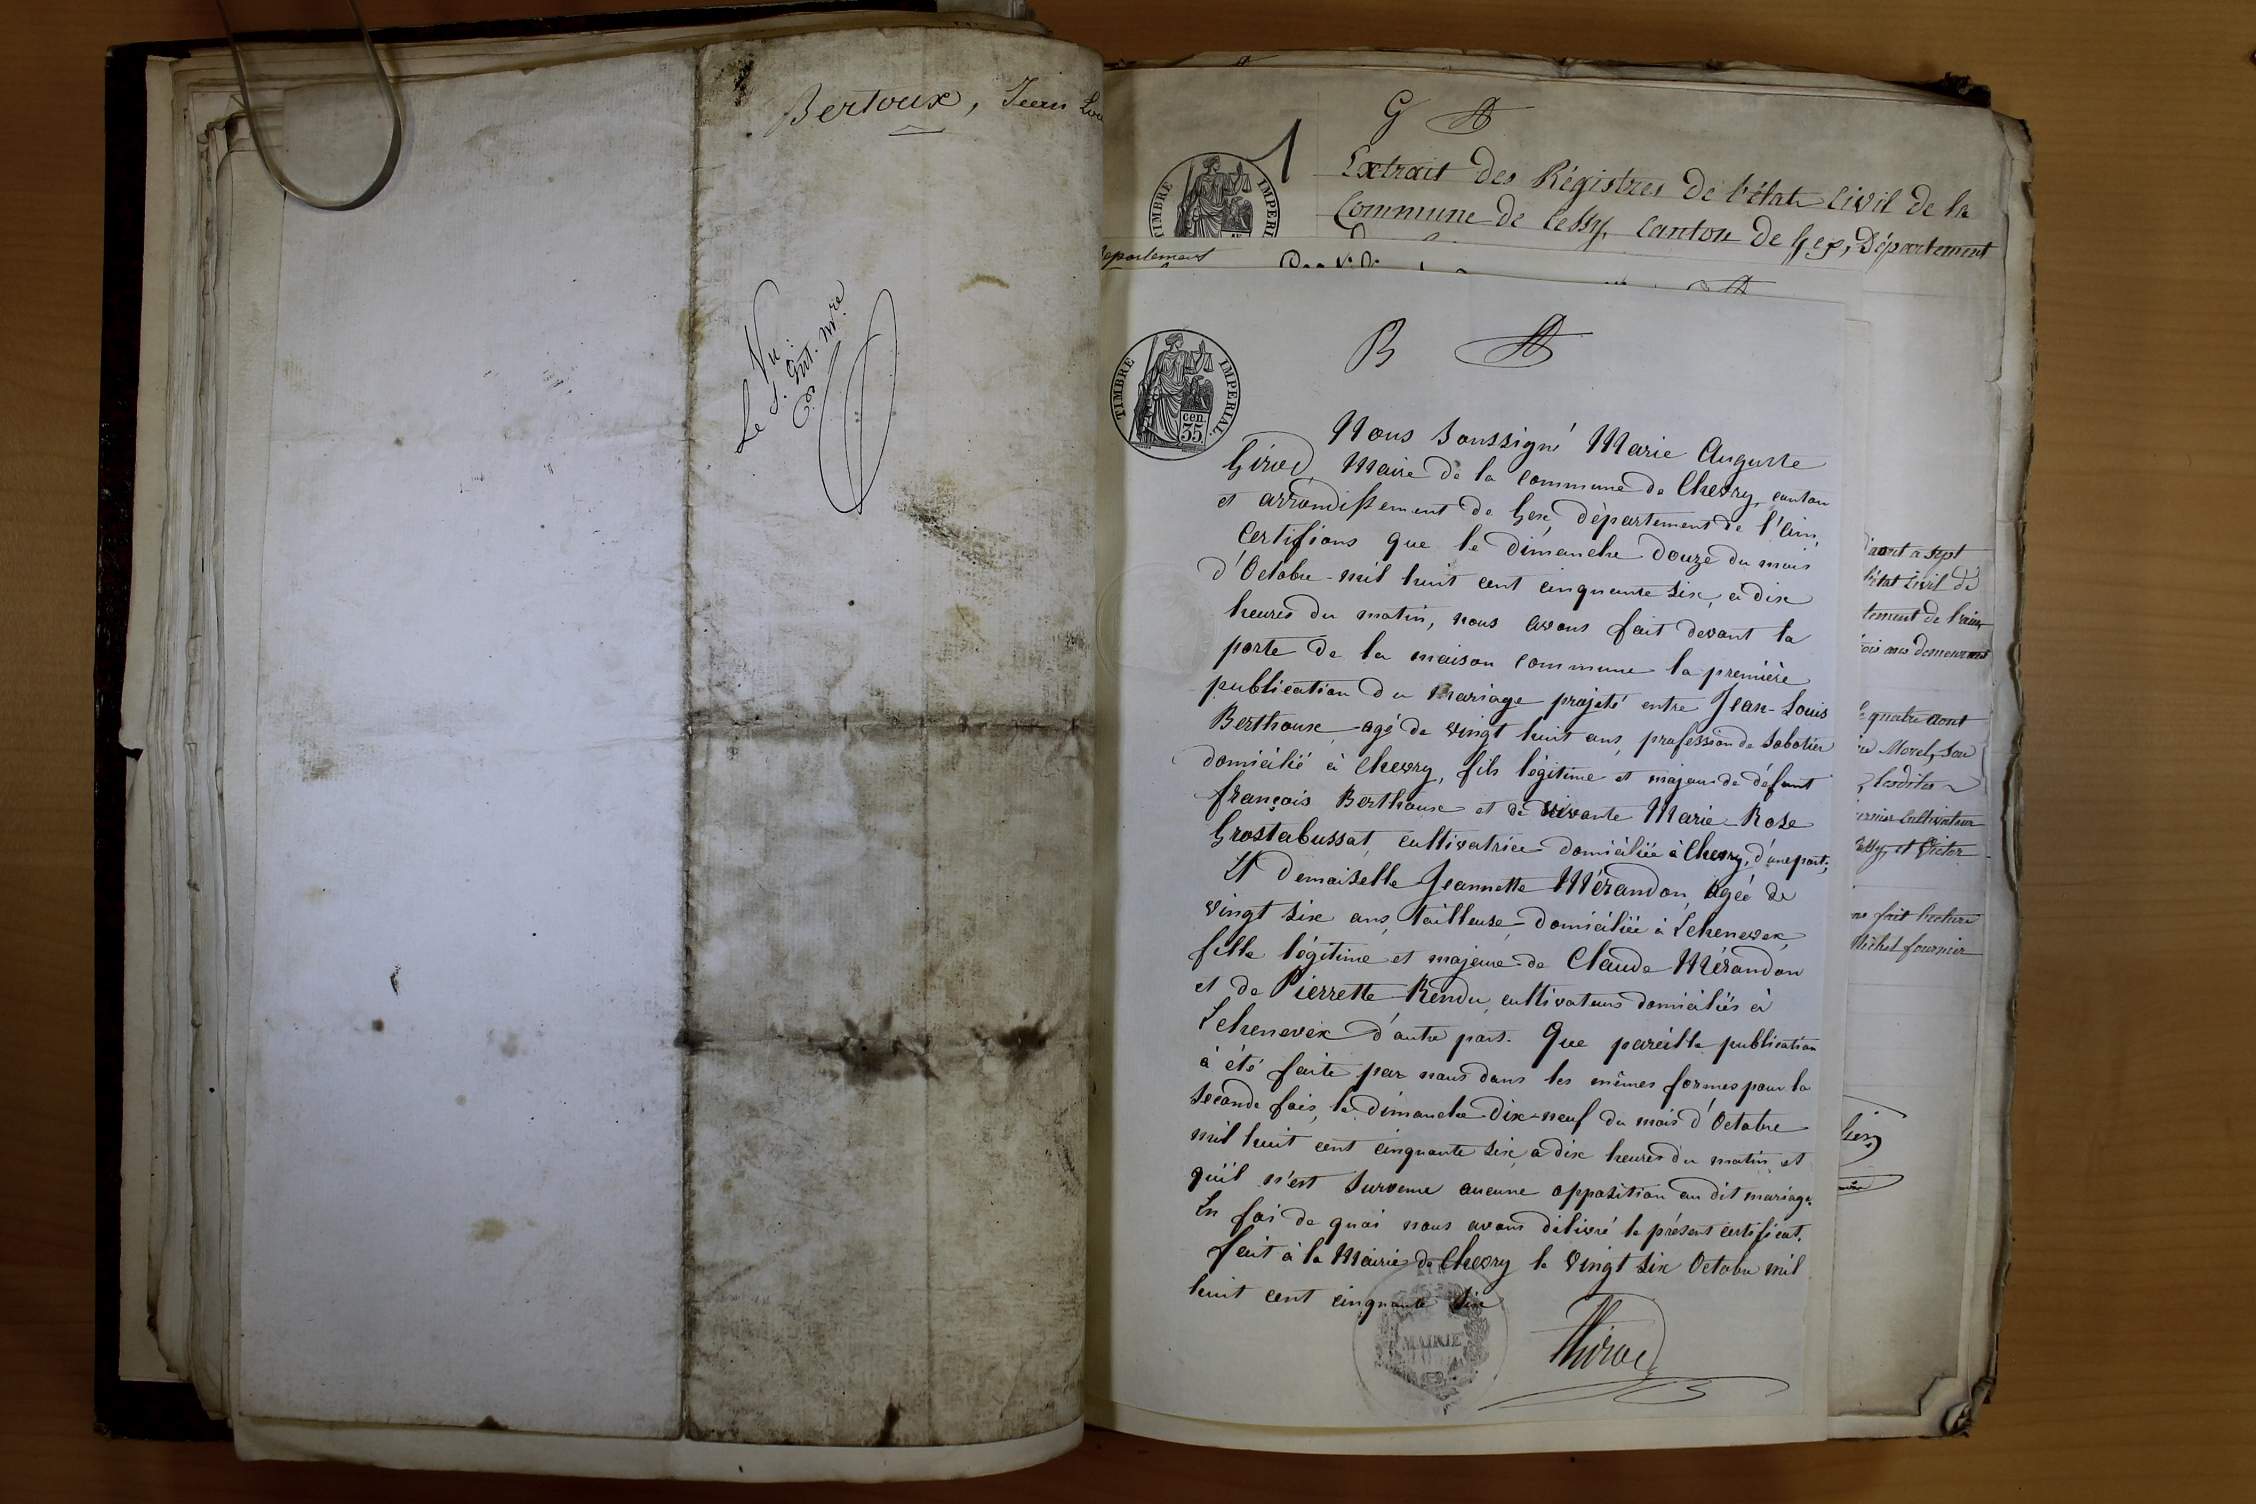 Bertoux, Jean Lou
Vu:
Le S. Int. Mre
G
1
Extrait des Régistres de l'état civil de la
Commune de Cessy, Canton de Gex, Département
TIMBRE IMPERI
Département
B
TIMBRE IMPERIAL.
cen
35
Nous soussigné Marie Auguste
Girod, Maire de la commune de Chevry, canton
et arrondissement de Gex, département de l'Ain,
Certifions que le dimanche douze du mois
d'Octobre mil huit cent cinquante six, à dix
heures du matin, nous avons fait devant la
porte de la maison commune la première
publication du mariage projeté entre Jean-Louis
Berthoux agé de vingt huit ans, profession de Sabotier
domicilié à Chevry, fils légitime et majeur de défunt
françois Berthoux et de vivante Marie-Rose
Grostabussat, cultivatrice domiciliée à Chevry, d'une part,
Et demoiselle Jeannette Mérandon, agée de
vingt six ans, tailleuse, domiciliée à Echenevex,
fille légitime et majeure de Claude Mérandon
et de Pierrette Rendu, cultivateurs domiciliés à
Echenevex d'autre part. Que pareille publication
à été faite par nous dans les mêmes formes pour la
seconde fois, le dimanche dix-neuf du mois d'Octobre
mil huit cent cinquante six, à dix heures du matin, et
qu'il n'est survenu aucune opposition au dit mariage.
En foi de quoi nous avons délivré le présent certificat.
fait à la Mairie de Chevry le vingt six Octobre mil
huit cent cinquante six
MAIRIE
Girod
d'aout a sept
l'état civil de
tement de l'ain
ois ans demeurant
le quatre aout
Morel, son
lesdites
cultivateur
Cessy, et Victor
fait lecture
Michel fournier